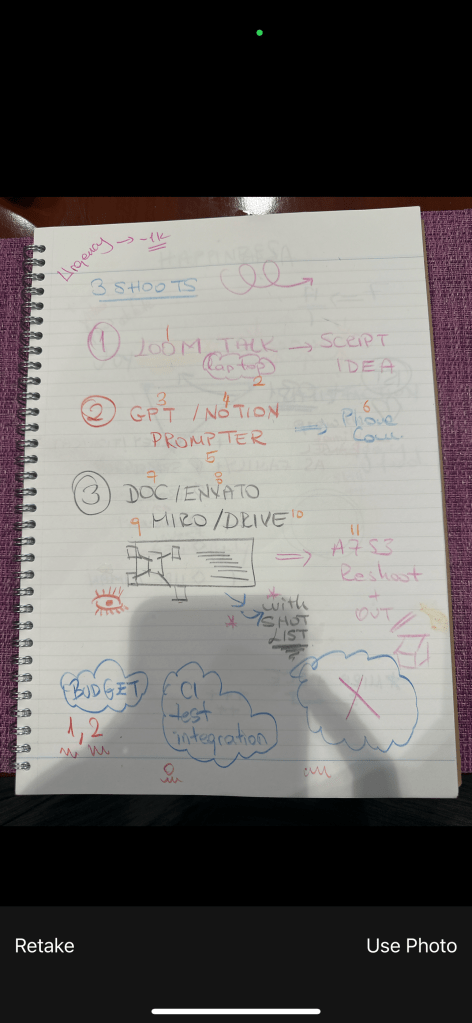 Urgency → -1k
3 SHOOTS
1 1 ZOOM TALK → SCRIPT IDEA
(laptop)
2
3 4 6
2 GPT / NOTION ⇒ Phone Cam
PROMPTER
5
7 8
3 DOC / ENVATO
9 MIRO / DRIVE 10
11
⇒ A7S3
Reshoot
+
OUT
* with
* SHOT
LIST
BUDGET
1, 2
CI
test
integration
X
Retake
Use Photo